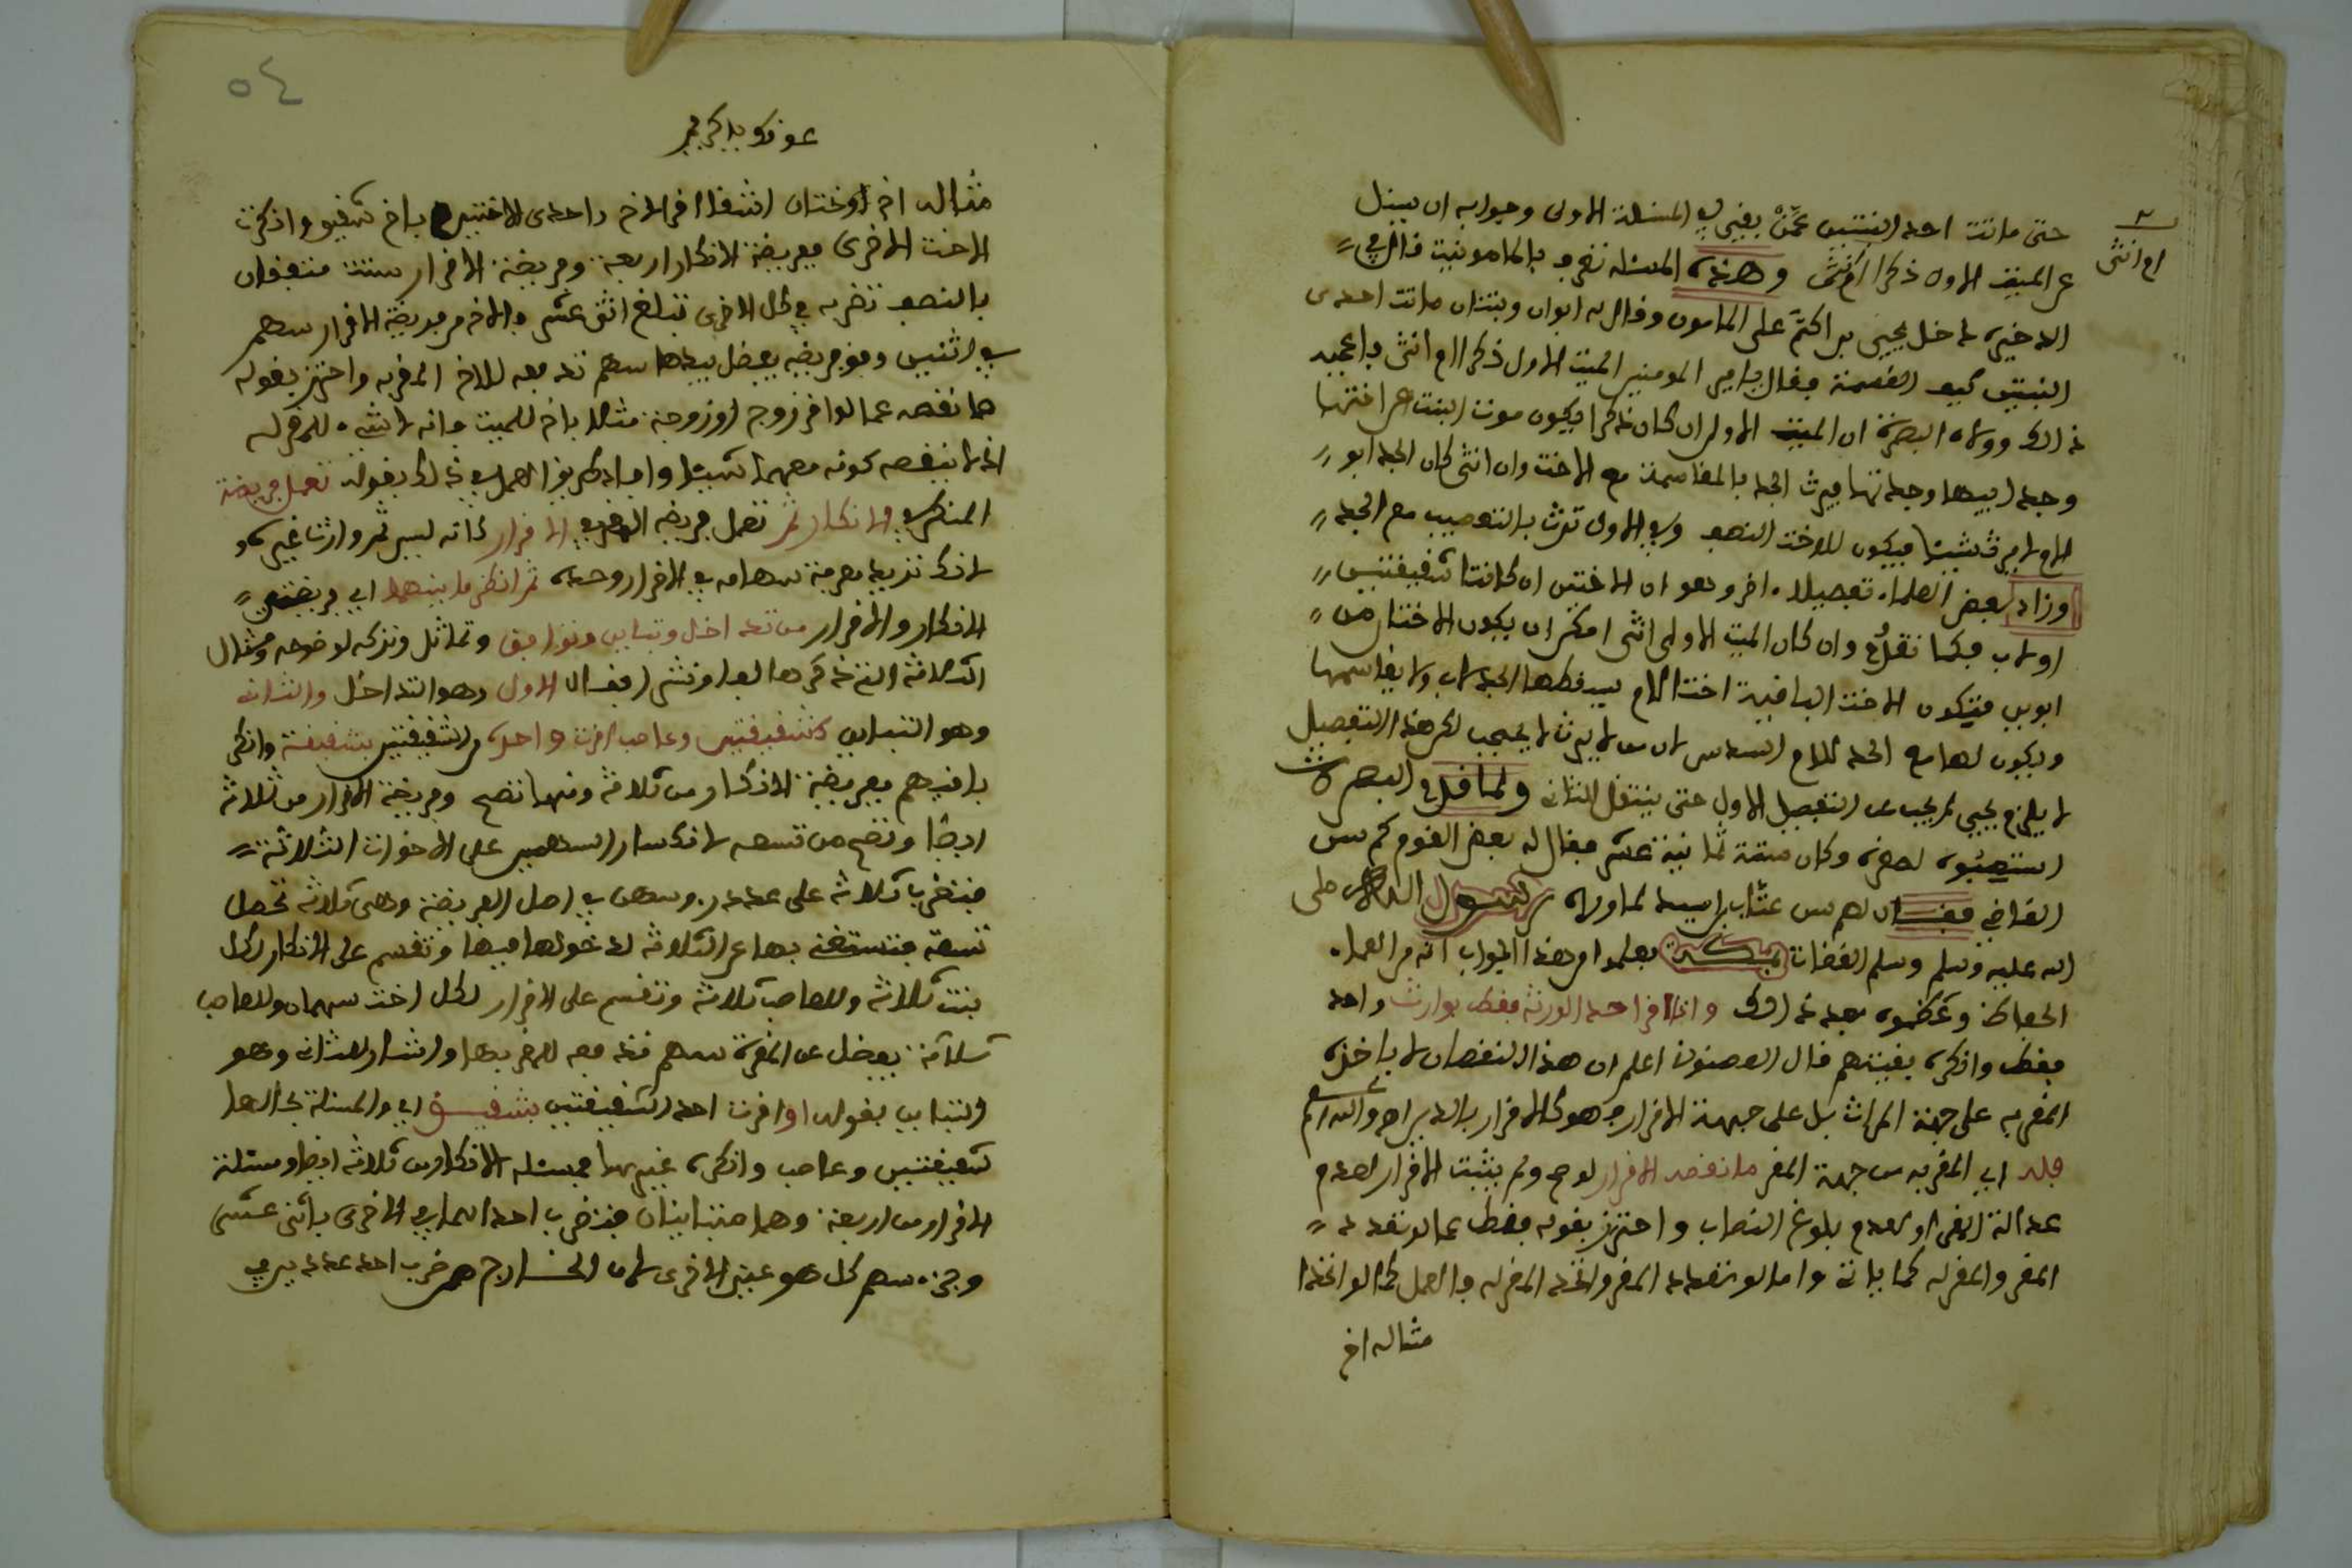 حتى ماتت احد البنتين عمن بقي في المسئلة الاولى وجوابه ان يسئل
ام انثى
عن الميت الاول ذكرا ام انثى وهذه المسئله تعرف بالمامونية قال في
الاخيرة دخل يحيى بن اكثم على المامون وقال له ابوان وبنتان ماتت احدى
البنتين كيف القسمة فقال يا امير المومنين الميت الاول ذكرا ام انثى فاعجبه
ذالك وولاه البصرة لان الميت الاول ان كان ذكرا فيكون موت البنت عن اختها
وجد ابيها وجدتها فيرث الجد بالمقاسمة مع الاخت وان انثى كان الجد ابو
الام لا يرث شيئا فيكون للاخت النصف وفي الاولى ترث بالتعصيب مع الجد
وزاد بعض العلماء تفصيلا اخر وهو ان الاختين ان كانتا شقيقتين
او لاب فكما تقدم وان كان الميت الاولى انثى امكن ان يكون الاختان من
ابوين فتكون الاخت الباقية اختا لام يسقطها الجد للاب ولا يقاسمها
ويكون لها مع الجد للام السدس لان من لا يرث لا يحجب لكن هذا التفصيل
لا يلزم يحيى لم يجب عن التفصيل الاول حتى ينتقل الثاني ولما قدم البصرة
استصغبوه لصغره وكان سنه ثمانية عشر فقال له بعض القوم كم سن
القاضي فقال لهم سن عتاب بن اسيد لما ولاه رسول الله صلى
الله عليه وسلم وسلم القضاء بمكة فعلموا من هذا الجواب انه من العلماء
الحفاظ وعظموه بعد ذالك وان اقر احد الورثة فقط بوارث واحد
فقط وانكره بقيتهم قال العصنوني اعلم ان هذا النقصان لا ياخذه
المقر به على جهة الميراث بل على جهة الاقرار فهو كالاقرار بالدين اهـ والله اعلم
فله اي المقر به من جهة المقر ما نقصه الاقرار لو صح ولم يثبت الاقرار لعدم
عدالة المقر او لعدم بلوغ النصاب واحترز بقوله فقط عما لو تعدد
المقر والمقر له كما ياتي واما لو تعدد المقر واتحد المقر له فالعمل كما لو اتحدا
مثاله اخ
٥٤
مثاله اخ واختان اشقاء اقر الاخ واحدى الاختين باخ شقيق وانكرت
الاخت الاخرى ففريضة الانكار اربعة وفريضة الاقرار ستة متفقان
بالنصف تضربه في كل الاخرى تبلغ اثنى عشر فللاخ من فريضة الاقرار سهم
في اثنين ومن فريضه يفضل بيدها سهم تدفعه للاخ المقر به واحترز بقوله
ما نقصه عما لو اقر زوج او زوجة مثلا باخ للميت فانه لا شيء للمقر له
اذ لا ينقصه كونه معهما شيئا واما طريق العمل في ذلك بقوله تعمل فريضة
المنكر في الانكار ثم تعمل فريضه المقر في الاقرار كانه ليس ثم وارثا غيره و
لانك تريد معرفة سهامه في الاقرار وحده ثم انظر ما بينهما اي فريضتي
الانكار والاقرار من تداخل وتباين وتوافق وتماثل وتركه لوضوحه ومثال
الثلاثة التي ذكرها لف ونشر فقال الاول وهو التداخل والثاني
وهو التباين كشقيقتين وعاصب اقرت واحدة من الشقيقتين بشقيقة وانكر
باقيهم ففريضة الانكار من ثلاثة ومنها تصح وفريضة الاقرار من ثلاثة
ايضا وتصح من تسعه لانكسار السهمين على الاخوات الثلاثة
فتضرب ثلاثة على عدد روسهن في اصل الفريضة وهي ثلاثة تحصل
تسعة فتستغني بها عن الثلاثة لدخولها فيها وتقسم على الانكار لكل
بنت ثلاثة وللعاصب ثلاثة وتقسم على الاقرار لكل اخت سهمان وللعاصب
ثلاثة يفضل عن المقرة سهم تدفعه للمقر بها واشار للثاني وهو
التباين بقوله او اقرت احد الشقيقتين بشقيق اي والمسئلة بحالها
شقيقتين وعاصب وانكره غيرها فمسئله الانكار من ثلاثه ايضا ومسئلة
الاقرار من اربعة وهما متباينان فتضرب احداهما في الاخرى باثنى عشر
وجزء سهم كل هو عين الاخرى لان الخارج من ضرب احد عددين في